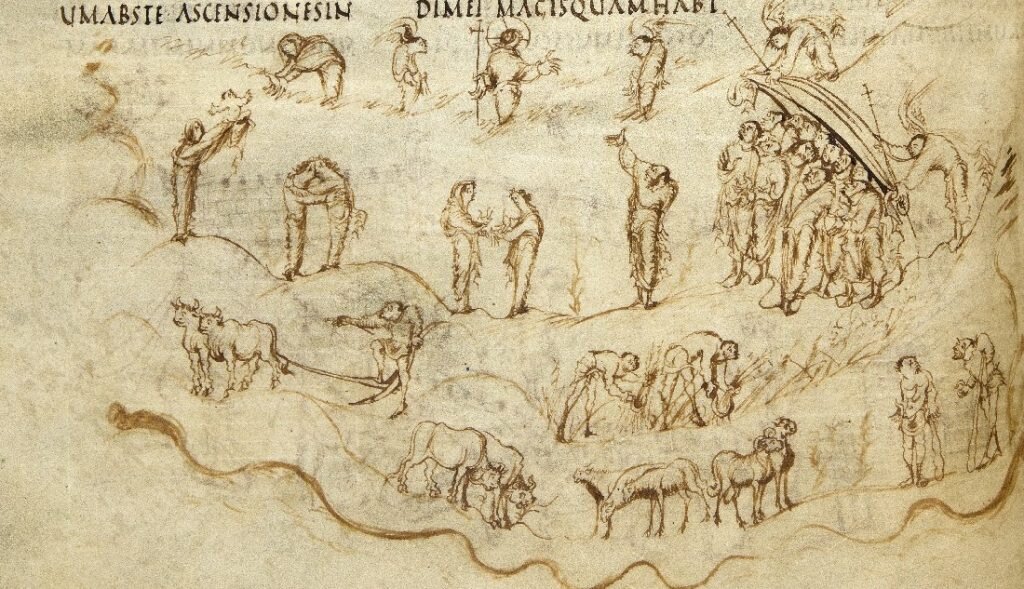 UMABSTE ASCENSIONESIN
DIMEI MAGISQUAMHABI